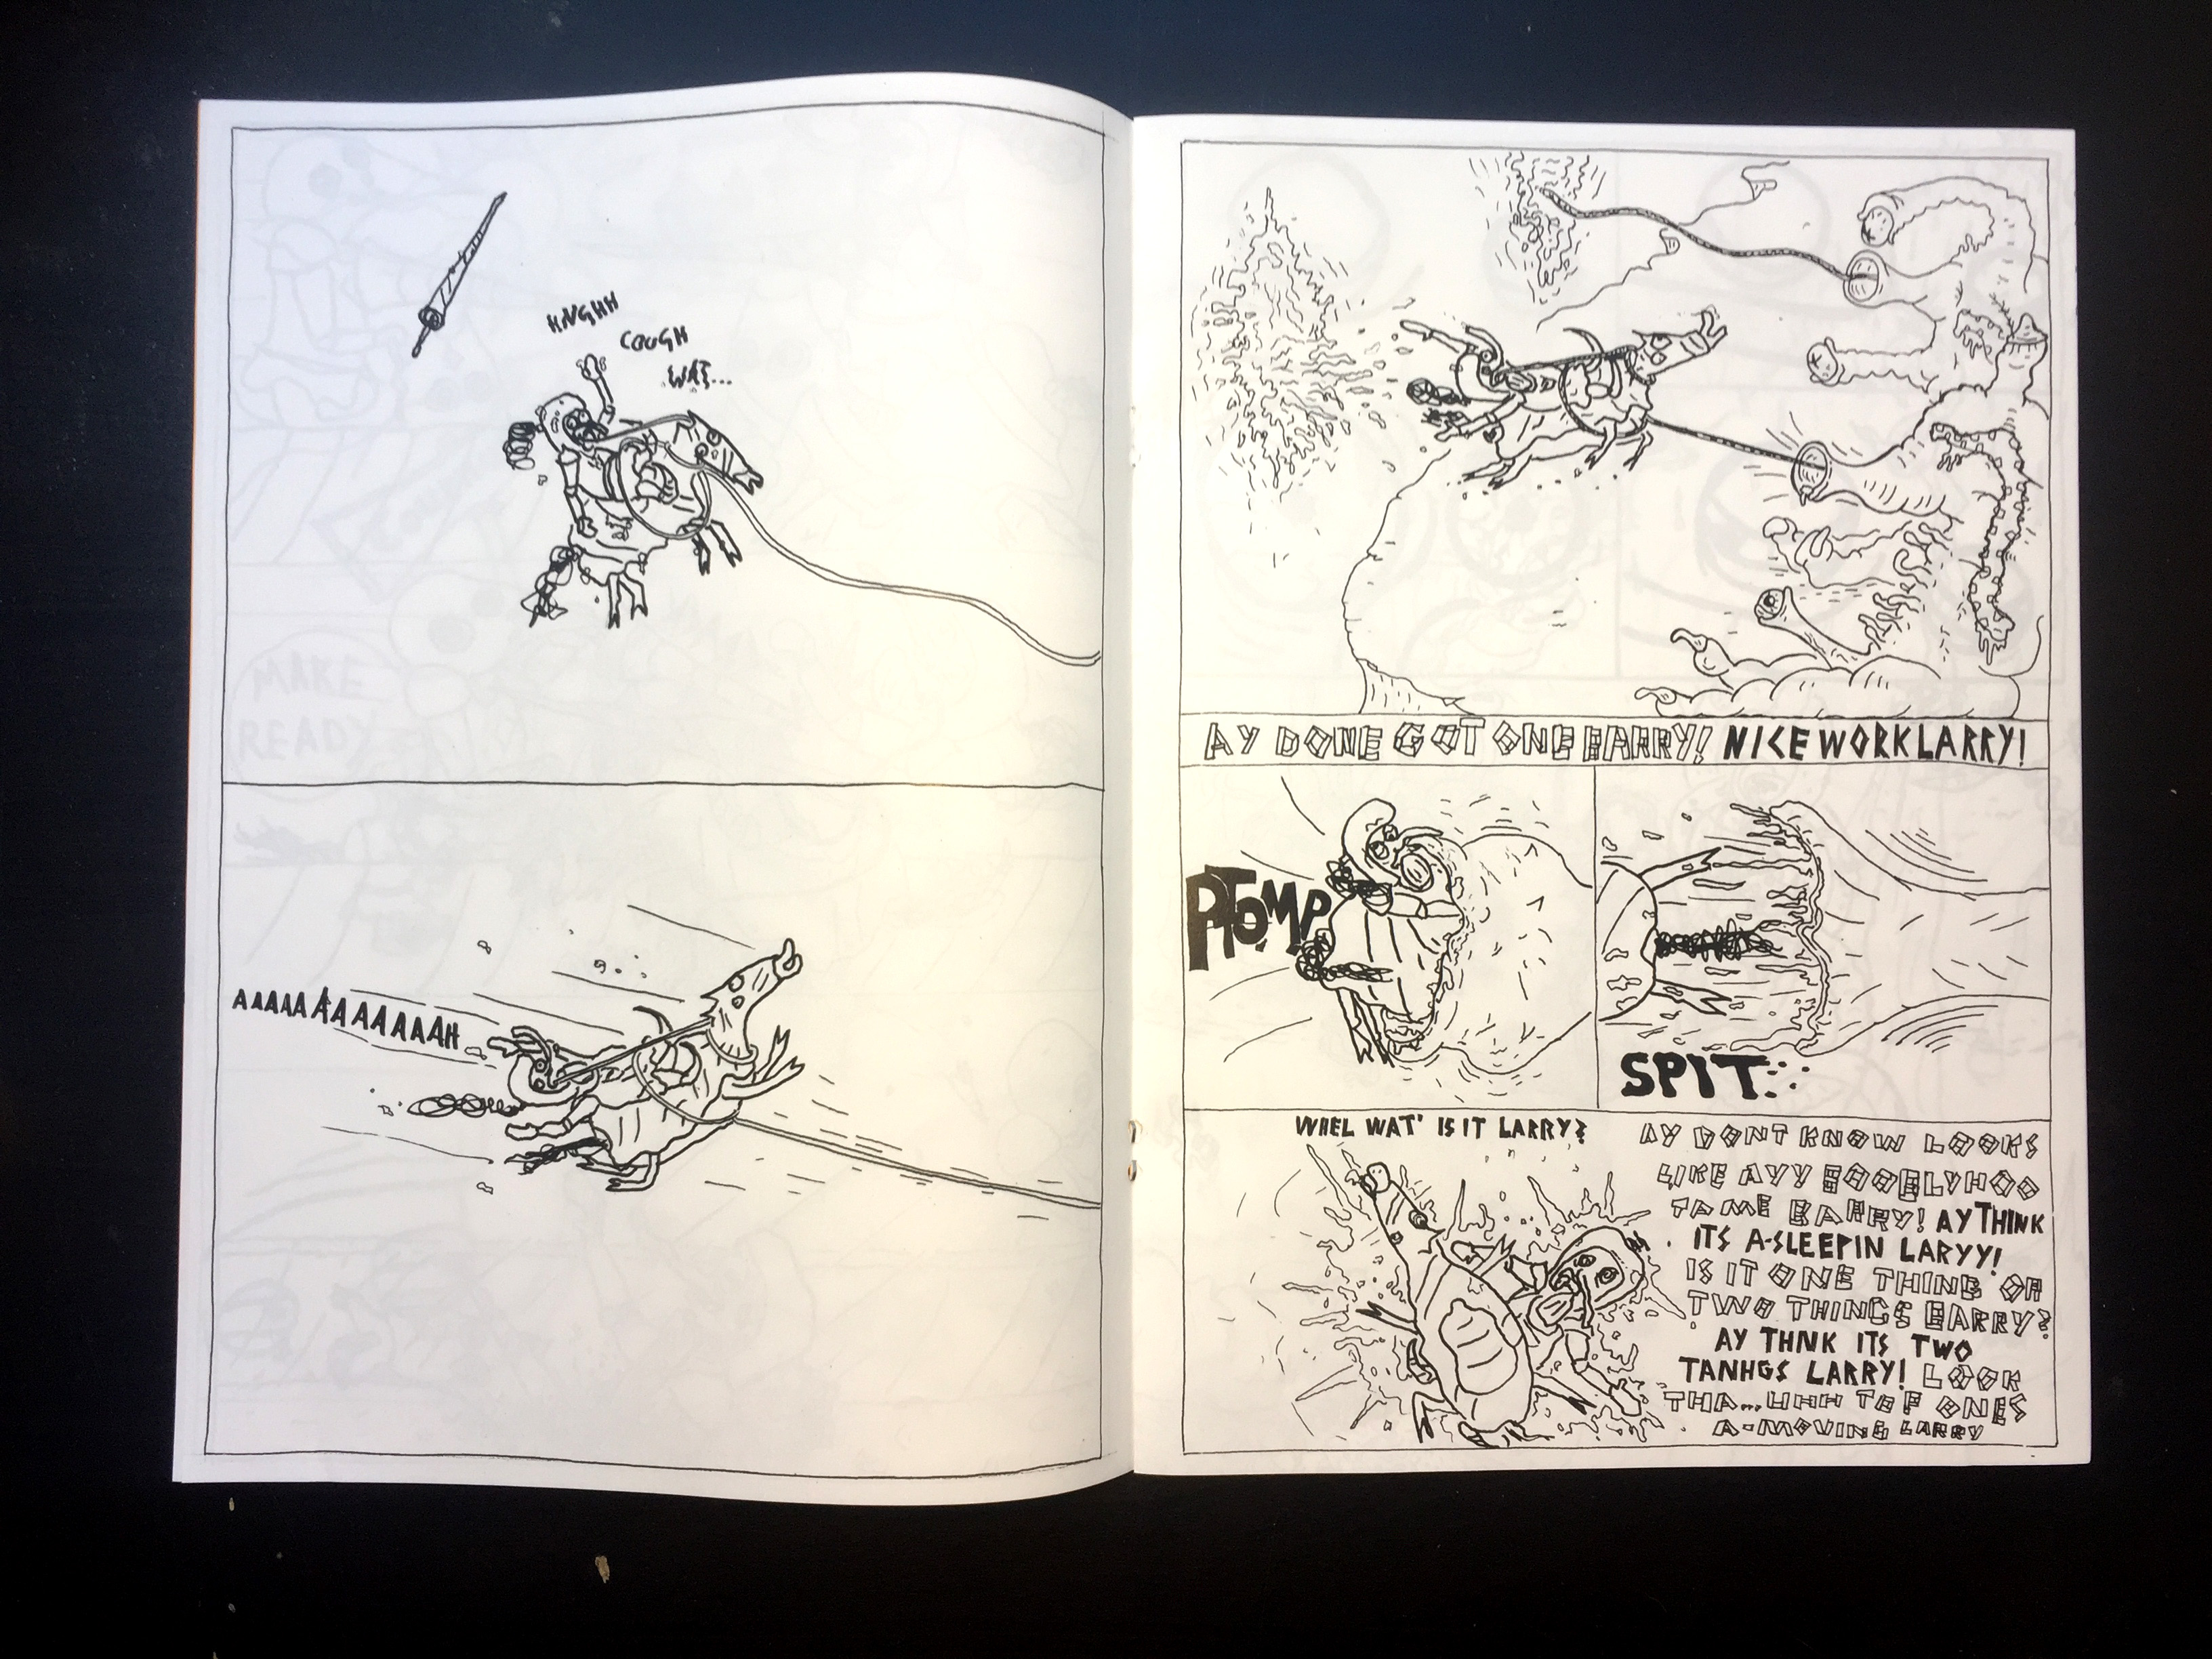 HNGHH
COUGH
WAT...
AAAAAAAAAAAAAH
MAKE
READY
AY DONE GOT ONE BARRY! NICE WORK LARRY!
PTOMP
SPIT
WHEL WAT' IS IT LARRY?
AY DONT KNOW LOOKS
LIKE AYY
TA ME BARRY! AY THINK
ITS A-SLEEPIN LARYY!
IS IT ONE THING OR
TWO THINGS BARRY?
AY THNK ITS TWO
TANHGS LARRY! LOOK
THA...UHH TOP ONES
A-MOVING LARRY